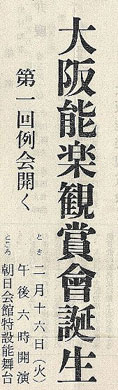 大阪能楽観賞會誕生
第一回例会開く
とき 二月十六日(火)
午後六時開演
ところ 朝日会館特設能舞台